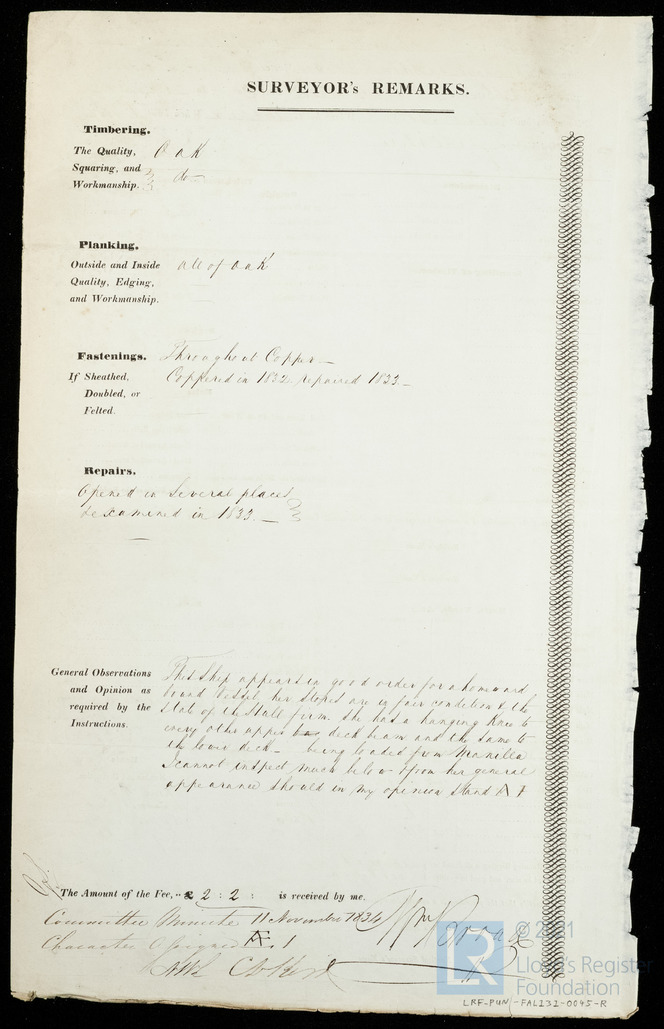 SURVEYOR's REMARKS.
Timbering.
The Quality, Oak
Squaring, and do
Workmanship.
Planking.
Outside and Inside all of Oak
Quality, Edging,
and Workmanship.
Fastenings. Throughout Copper
If Sheathed, Coppered in 1832 repaired 1833
Doubled, or
Felted.
Repairs.
Opened in Several places
& examined in 1833
General Observations
and Opinion as
required by the
Instructions.
This Ship appears in good order for a homeward
bound Vessel her Stores are in fair condition & the
State of the Hull firm. She has a hanging Knee to
every other upper deck beam and the same to
the lower deck being loaded from Manilla
I cannot inspect much below & from her general
appearance should in my opinion Stand A 1
The Amount of the Fee, 2 : 2 : is received by me.
Committee Minute 11 November 1834
Character Assigned 1
© 2021
LR
Lloyd's Register
Foundation
LRF-PUN-FAL232-0045-R